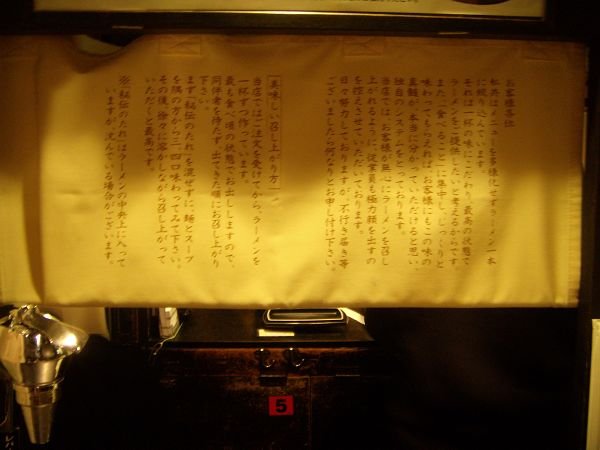 お客様各位
私共はメニューを多様化せずラーメン一本
に絞り込んでいます。
それは一杯の味にこだわり、最高の状態で
ラーメンをご提供したいと考えるからです
また「食べること」に集中し、じっくりと
味わってもらえれば、お客様にもこの味の
真髄が本当に分かっていただけると思い、
独自のシステムをとっております。
当店では、お客様が無心にラーメンを召し
上がれるように、従業員も極力顔を出すの
を控えさせていただいております。
日々努力しておりますが、不行き届き等
ございましたら何なりとお申し付け下さい。
美味しい召し上がり方
当店ではご注文を受けてから、ラーメンを
一杯ずつ作っています。
最も食べ頃の状態でお出ししますので、
同伴者を待たず、出てきた順にお召し上がり
下さい。
まず「秘伝のたれ」を混ぜずに、麺とスープ
を隅の方から三、四口味わってみて下さい。
その後、徐々に溶かしながら召し上がって
いただくと最高です。
※「秘伝のたれ」はラーメンの中央上に入って
いますが、沈んでいる場合がございます。
5